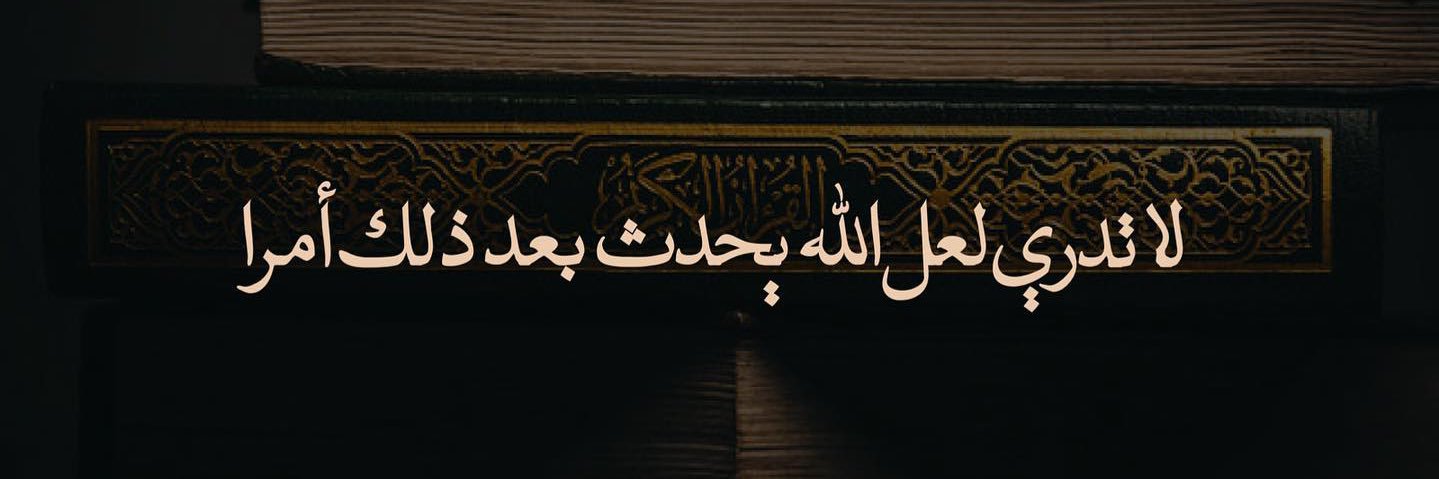 القرآن الكريم
لا تدري لعل الله يحدث بعد ذلك أمرا